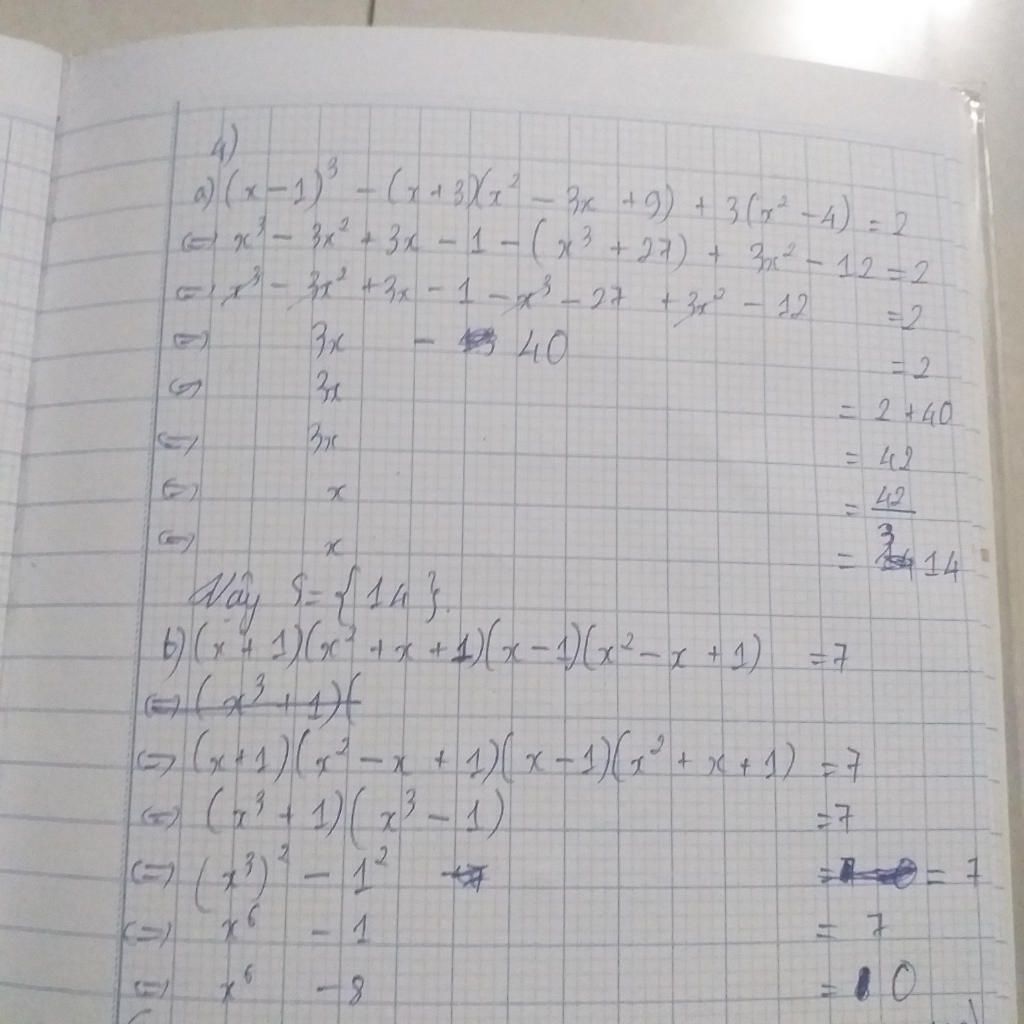 4)
a) (x - 1)³ - (x + 3)(x² - 3x + 9) + 3(x² - 4) = 2
⇔ x³ - 3x² + 3x - 1 - (x³ + 27) + 3x² - 12 = 2
⇔ x³ - 3x² + 3x - 1 - x³ - 27 + 3x² - 12 = 2
⇔ 3x - 40 = 2
⇔ 3x = 2 + 40
⇔ 3x = 42
⇔ x = 42/3
⇔ x = 14
Vậy S = {14}.
b) (x + 1)(x² + x + 1)(x - 1)(x² - x + 1) = 7
⇔ (x³ + 1)(
⇔ (x + 1)(x² - x + 1)(x - 1)(x² + x + 1) = 7
⇔ (x³ + 1)(x³ - 1) = 7
⇔ (x³)² - 1² = 7
⇔ x⁶ - 1 = 7
⇔ x⁶ - 8 = 0